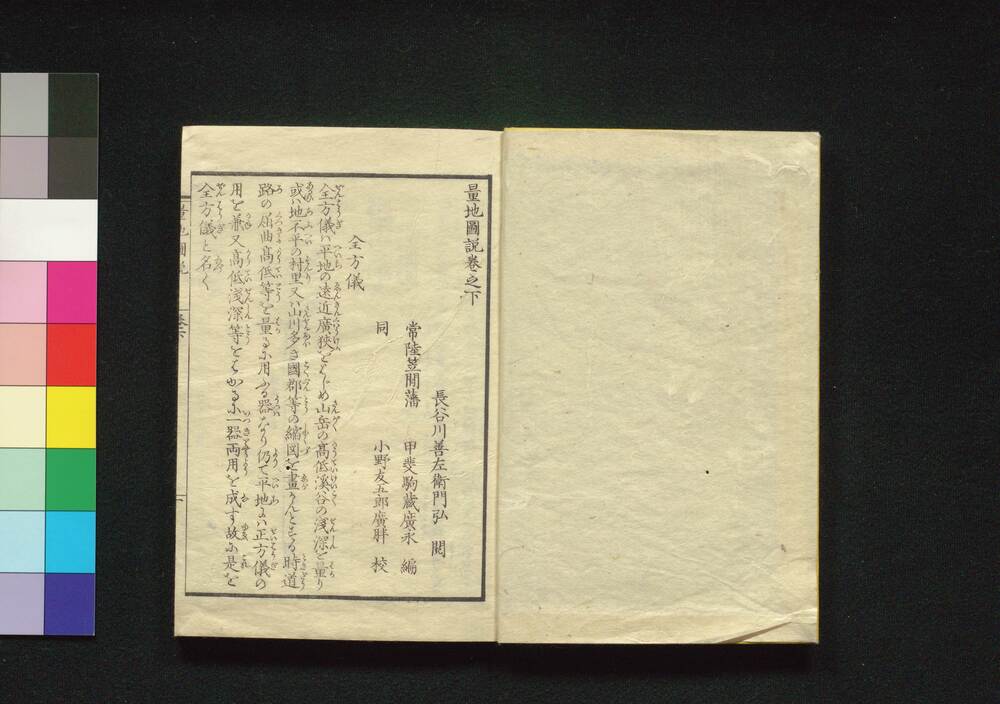 量地圖說卷之下
長谷川善左衛門弘　閱
常陸笠間藩　甲斐駒蔵廣永　編
同　小野友五郎廣胖　校
全方儀
全方儀ハ平地の遠近廣狹をはじめ山岳の高低溪谷の淺深を量り
或ハ地不平の村里又ハ山川多き國郡等の縮図を畫かんとする時道
路の屈曲高低等を量るに用ふる器なり仍て平地にハ正方儀の
用を兼又高低淺深等をはかるに一器両用を成す故に是を
全方儀と名く
量地圖說